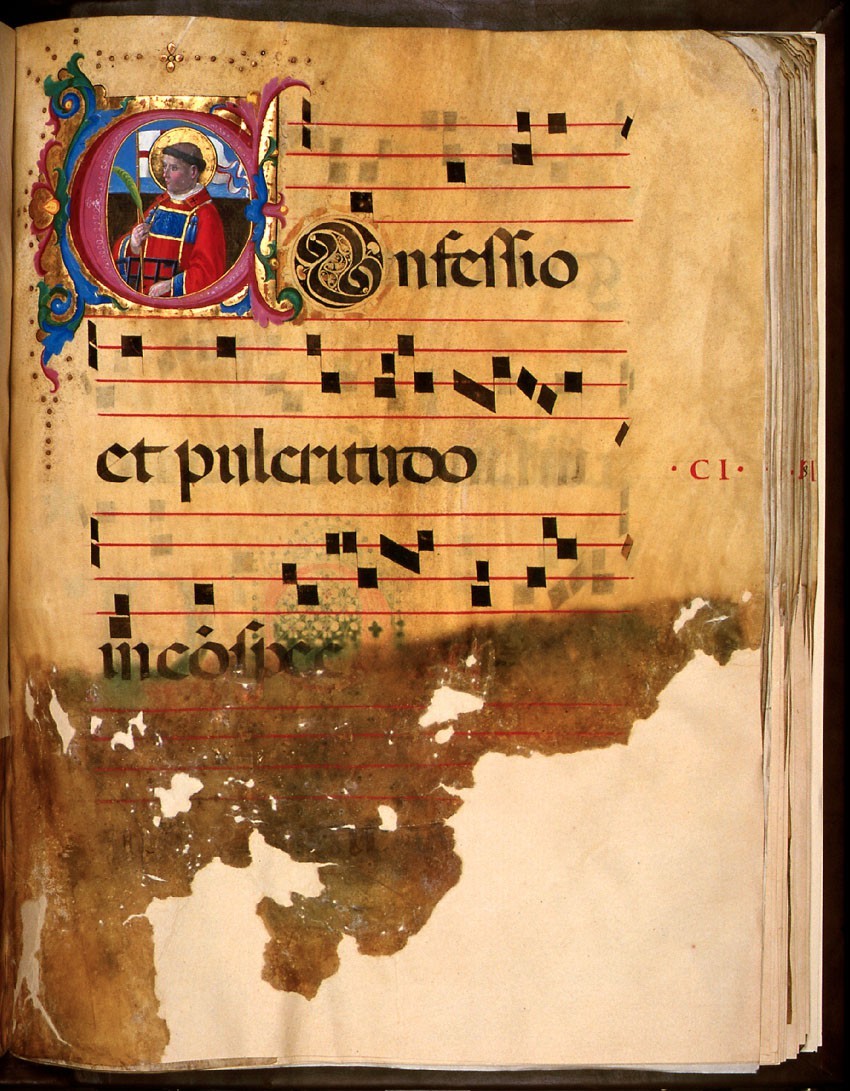 COnfessio
et pulcritudo
· CI ·
in cōspec